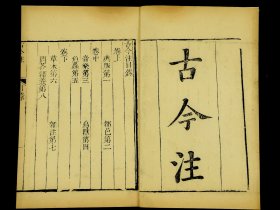 古今注
古今注目錄
卷上
輿服第一　都邑第二
卷中
音樂第三　鳥獸第四
魚蟲第五
卷下
草木第六　雜注第七
問答釋義第八